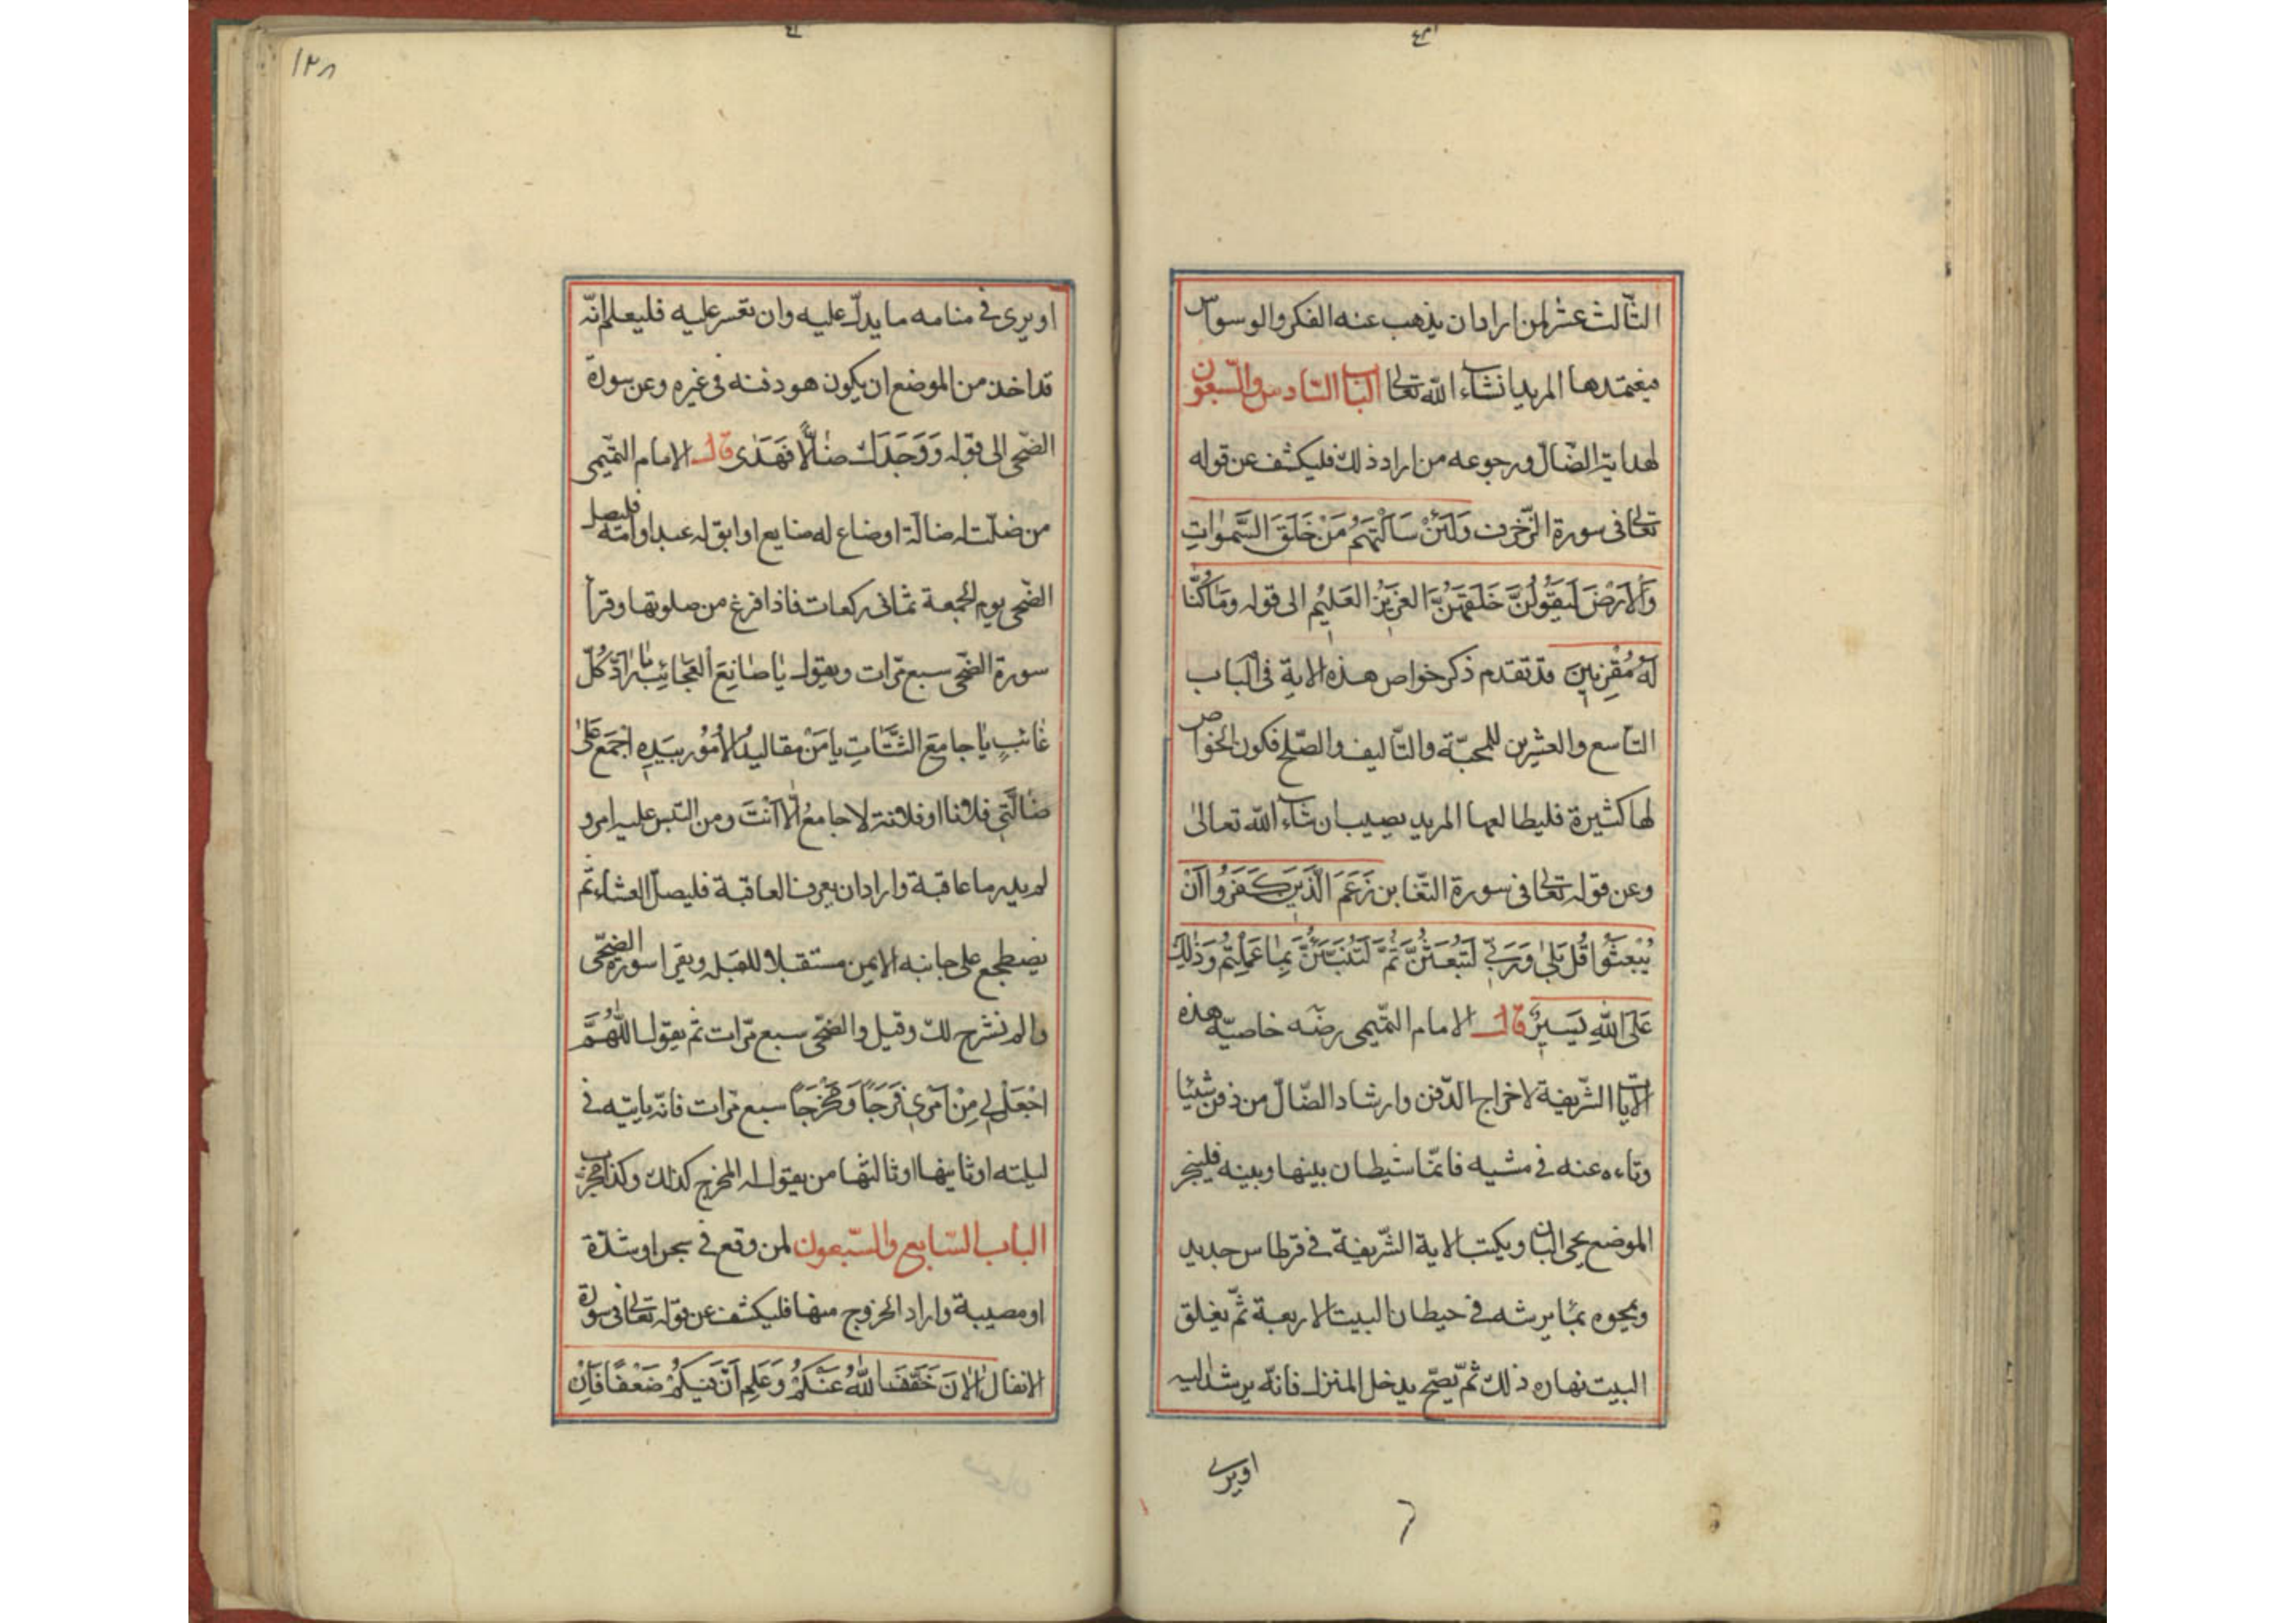 الثّالث عشر لمن اراد ان يذهب عنه الفكر والوسواس
فيغتمدها المريد انشاء الله تعالى الباب السّادس والسّبعون
لهداية الضّالّ ورجوعه من اراد ذلك فليكشف عن قوله
تعالى فى سورة الزّخرف وَلَئِنْ سَاَلْتَهُمْ مَنْ خَلَقَ السَّمٰوَاتِ
وَالْاَرْضَ لَيَقُولُنَّ خَلَقَهُنَّ العَزِيْزُ العَلِيْمُ الى قوله وَمَا كُنَّا
لَهُ مُقْرِنِيْنَ قد تقدم ذكر خواص هذه الاية فى الباب
التاسع والعشرين للمحبّة والتّاليف والصّلح فكون الخواص
لها كثيرة فليطالعها المريد يصيب ان شاء الله تعالى
وعن قوله تعالى فى سورة التّغابن زَعَمَ الَّذِيْنَ كَفَرُوا اَنْ
يُبْعَثُوا قُلْ بَلٰى وَرَبِّى لَتُبْعَثُنَّ ثُمَّ لَتُنَبَّئُنَّ بِمَا عَمِلْتُمْ وَذٰلِكَ
عَلَى اللهِ يَسِيْرٌ قال الامام التّميمى رضه خاصيّة هذه
الآيات الشّريفة لاخراج الدّفن وارشاد الضّالّ من دفن شيئا
وتاه عنه فى مشيه فانّما شيطان بينها وبينه فليبخر
الموضع بحى البان ويكتب الاية الشّريفة فى قرطاس جديد
ويمحوه بما يرشه فى حيطان البيت الاربعة ثمّ يغلق
البيت نهاره ذلك ثم يصبح يدخل المنزل فانّه يرشد اليه
اويرى
او يرى فى منامه ما يدلّ عليه وان تعسر عليه فليعلم انّه
قد اخذ من الموضع ان يكون هو دفنه فى غيره وعن سورة
الضّحى الى قوله وَوَجَدَكَ ضَالًّا فَهَدٰى قال الامام التّميمى
من ضلّت له ضالّة او ضاع له ضايع او ابق له عبد او امة فليصل
الضّحى يوم الجمعة ثمانى ركعات فاذا فرغ من صلوتها وقرأ
سورة الضّحى سبع مرّات ويقول يَا صَانِعَ الْعَجَائِبِ يَا رَادَّ كُلِّ
غَائِبٍ يَا جَامِعَ الشَّتَاتِ يَا مَنْ مَقَالِيدُ الْاُمُوْرِ بِيَدِهِ اجْمَعْ عَلَىَّ
ضَالَّتِى فلانا او فلانة لا جامعُ اِلَّا اَنْتَ ومن التبس عليه امر و
لم يدر ما عاقبة واراد ان يعرف العاقبة فليصلّ العشاء ثمّ
يضطجع على جانبه الايمن مستقبلا للقبلة ويقرا سورة الضّحى
والم نشرح لك وقيل والضّحى سبع مرّات ثم يقول اللّٰهُمَّ
اجْعَلْ لِى مِنْ اَمْرِى فَرَجًا وَمَخْرَجًا سبع مرّات فانّه ياتيه فى
ليلته او ثانيها او ثالثها من يقول له المخرج كذلك وكذا
الباب السّابع والسّبعون لمن وقع فى بحر او شدّة
او مصيبة واراد الخروج منها فليكشف عن قوله تعالى فى سورة
الانفال الْاٰنَ خَفَّفَ اللّٰهُ عَنْكُمْ وَعَلِمَ اَنَّ فِيْكُمْ ضَعْفًا فَاِنْ